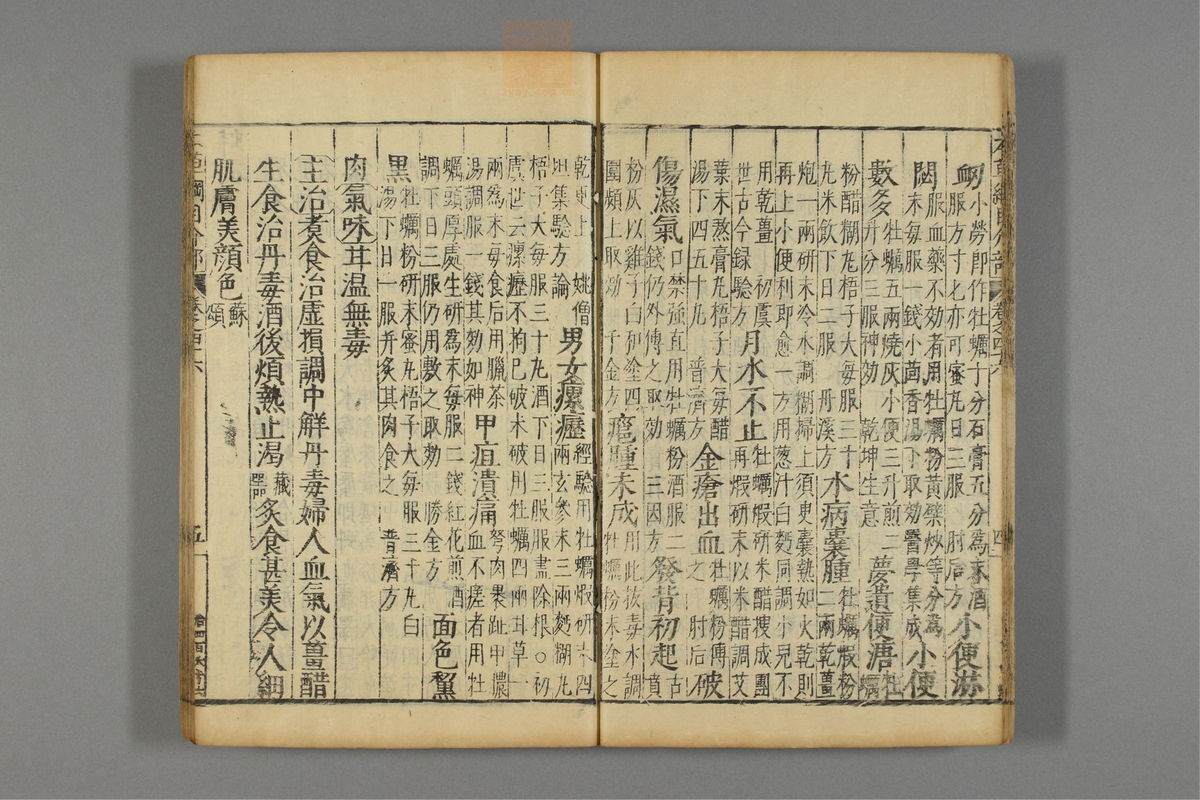 本草綱目介部 卷之四十六 四
衂小勞卽作牡蠣十分石膏五分為末酒服方寸匕亦可蜜丸日三服 肘后方 小便淋
閟服血藥不効者用牡蠣粉黃蘗炒等分為末每服一錢小茴香湯下取効 醫學集成 小便
數多牡蠣五兩燒灰小便三升煎二升分三服神効 乾坤生意 夢遺便溏牡蠣
粉醋糊丸梧子大每服三十丸米飲下日二服 丹溪方 水病囊腫牡蠣煅粉二兩乾薑
炮一兩研末冷水調糊掃上須臾囊熱如火乾則再上小便利即愈一方用葱汁白麪同調小兒不
用乾薑 初虞世古今録驗方 月水不止牡蠣煅研米醋搜成團再煅研末以米醋調艾
葉末熬膏丸梧子大每醋湯下四五十丸 普濟方 金瘡出血牡蠣粉傅之 肘后 破
傷濕氣口禁強直用牡蠣粉酒服二錢仍外傅之取効 三因方 發背初起古賁
粉灰以雞子白和塗四圍頻上取効 千金方 癰腫未成用此拔毒水調牡蠣粉末塗之
乾更上 姚僧坦集驗方論 男女瘰癧經驗用牡蠣煅研末四兩玄參末三兩麪糊丸
梧子大每服三十丸酒下日三服盡除根○初虞世云瘰癧不拘已破未破用牡蠣四兩甘草一
兩為末每食后用臘茶湯調服一錢其効如神 甲疽潰痛弩肉褁趾甲膿血不瘥者用牡
蠣頭厚處生研為末每服二錢紅花煎酒調下日三服仍用敷之取効 勝金方 面色黧
黑牡蠣粉研末蜜丸梧子大每服三十丸白湯下日一服并炙其肉食之 普濟方
肉氣味甘温無毒
主治煮食治虛損調中解丹毒婦人血氣以薑醋
生食治丹毒酒後煩熱止渴藏器炙食甚美令人細
肌膚美顔色蘇頌
五